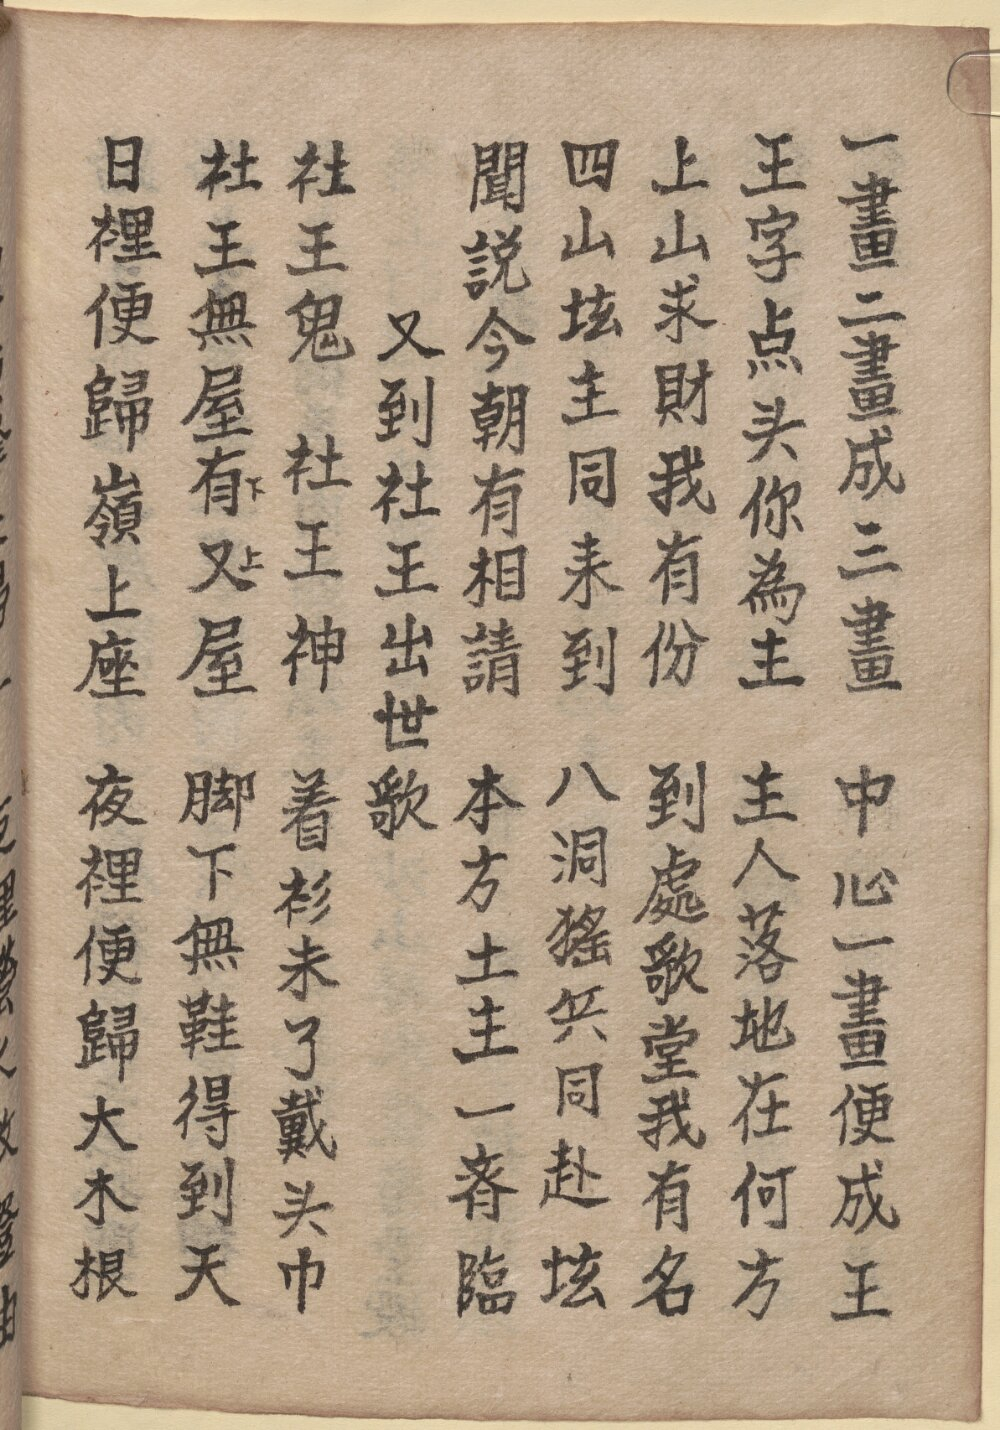 一畫二畫成三畫 中心一畫便成王
王字点头你為主 主人落地在何方
上山求財我有份 到處歌堂我有名
四山坛主同来到 八洞猺兵同赴坛
聞説今朝有相請 本方土主一齐臨
又到社王出世歌
社王鬼 社王神 着衫未了戴头巾
社王無屋有下又上屋 脚下無鞋得到天
日裡便歸嶺上座 夜裡便歸大木根